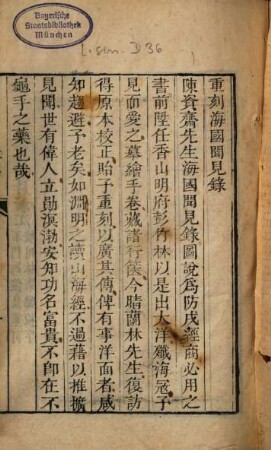 Bayerische
Staatsbibliothek
München
L. sin. D 36
重刻海國聞見錄
陳資齋先生海國聞見錄圖說爲防戍經商必用之
書前陞任香山明府彭竹林以是出大洋殲海冦予
見而愛之摹繪手卷藏諸行篋今晴蘭林先生復訪
得原本校正貽子重刻以廣其傳俾有事洋面者咸
知趨避予老矣如淵明之讀山海經不過藉以推擴
見聞世有偉人立勛溟渤安知功名富貴不卽在不
龜手之藥也哉